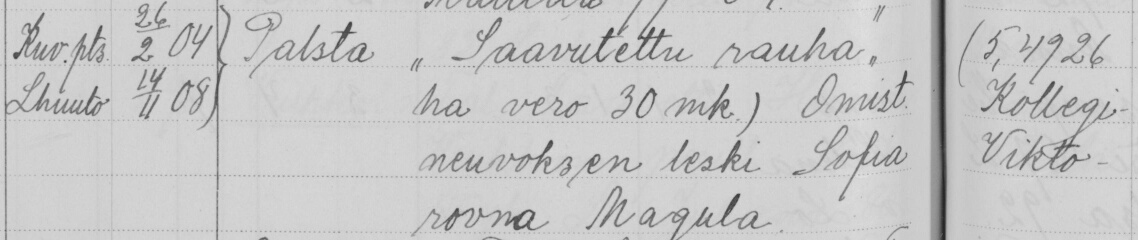 Kuv. pts. 26/2 04 } Palsta „Saavutettu rauha„ (5,4926
Lhuuto 14/11 08 ha vero 30 mk.) Omist. Kollegi-
neuvoksen leski Sofia Vikto-
rovna Magula.